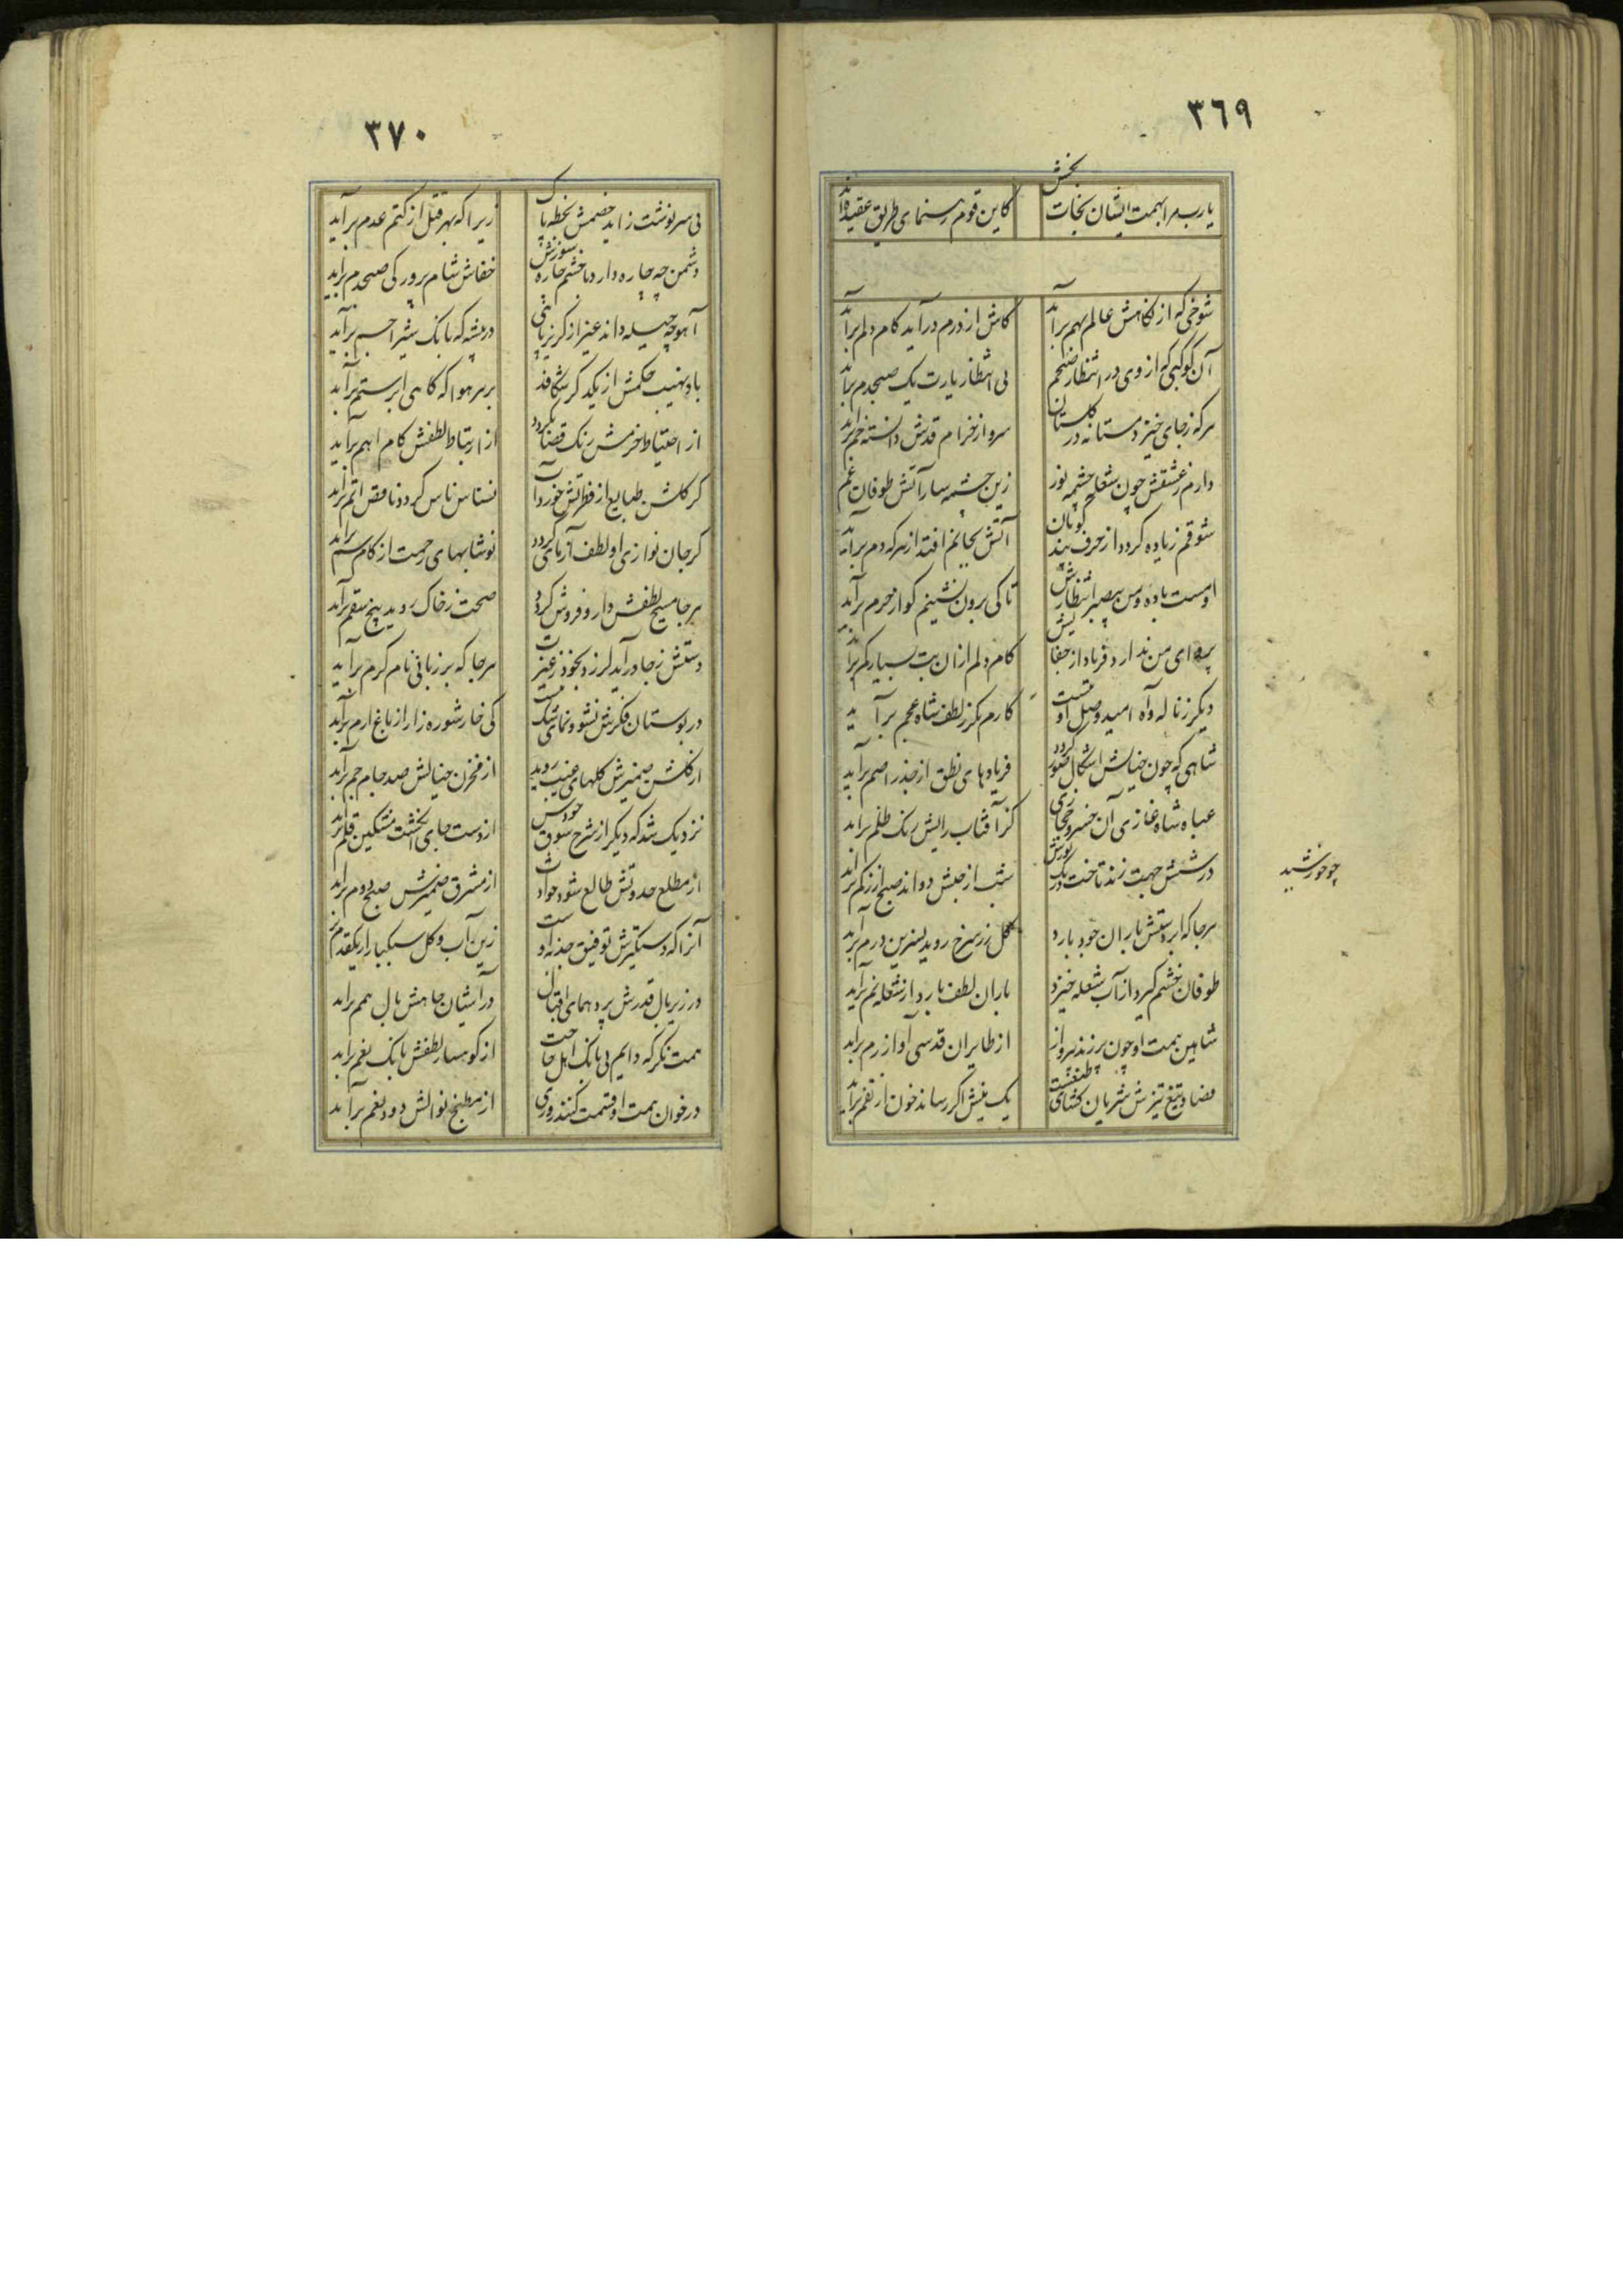 ٣٦٩
یارب مرا بهمت ایشان نجات بخش
کاین قوم رهنمای طریق عقیده‌اند
شوخی که از نکاهش عالم بهم برآید
کاش از درم درآید کام دلم برآید
آن کوکبی که از وی در انتظار صبحم
بی انتظار یارب یک صبحدم برآید
هرکه ز جای خیزد مستانه در گلستان
سرو از خرام قدش دانسته خم برآید
دارم ز عشقش چون شعله چشمه نور
زین چشمه سار آتش طوفان غم
شوقم زیاده کردد از حرف پند گویان
آتش بجانم افتد از هرکه دم برآید
او مست باده و من بیصبر انتظارش
تا کی برون نشینم کو از حرم برآید
پروای من ندارد فریاد از جفا کیش
کام دلم از ان بت بسیار کم برآید
دیکر ز ناله و آه امید وصل او نیست
کارم مکر ز لطف شاه عجم برآید
شاهی که چون خیالش اشکال صور کردد
فریادهای نطق از جذر اصم برآید
عباه شاه غازی آن خسرو حجازی
کز آفتاب رایش رنک ظلم برآید
در شش جهت زند تاخت ورنک یورش
شب از حبش دواند صبح از زنکم برآید
هرجا که ابر دستش باران جود بارد
گل زر سرخ روید نسرین درم برآید
طوفان خشم کیرد از آب شعله خیزد
باران لطف بارد از شعله نم برآید
شاهین همت او چون پر زند بپرواز
از طایران قدسی آواز رم برآید
فصاد تیغ تیزش شریان کشای
یک نیش اکر رساند خون از بقم برآید
چو خورشید
٣٧٠
بی سرنوشت زاید خصمش بخطه پاک
زیرا که بهر قتل از کتم عدم برآید
دشمن چه چاره دارد با خشم چاره سوزش
خفاش شام پرور کی صبحدم برآید
آهو چه حیله داند غیر از کریز پائی
در بیشه که بانک شیر اجم برآید
باد نهیب حکمش از یکدکر شکافد
بر سر هوا که کاهی ابر ستم برآید
از احتیاط خرمش رنک قضا بکردد
از ارتباط لطفش کام اهم برآید
کر کلشن طبایع از فطرتش خورد آب
نسناس ناس کردد ناقص اتم برآید
کر جان نوازی او لطف آزمای کردد
نوشابهای رحمت از کام سم برآید
هرجا مسیح لطفش دارو فروش کردد
صحت ز خاک روید بیخ سقم برآید
دستش ز جا درآید لرزد بخود ز غیرت
هرجا که بر زبانی نام کرم برآید
در بوستان فکرش نشو و نمای شک نیست
کی خار شوره زار از باغ ارم برآید
از کلشن ضمیرش کلهای غیب روید
از مخزن خیالش صد جام جم برآید
نزدیک شد که دیکر از شرح شوق خودس
از دست جای انکشت مشکین قلم برآید
از مطلع حدوثش طالع شود حوادث
از مشرق ضمیرش صبح دوم برآید
آنرا که دستکیرش توفیق جذبه اوست
زین آب و کل سبکبار از یکقدم برآید
در زیر بال قدرش پرد همای اقبال
در آشیان جاهش بال همم برآید
همت نکر که دایم بی بانک اهل حاجت
از کوهسار لطفش بانک نعم برآید
در خوان همت او قسمت کنند روزی
از مطبخ نوالش دود نعم برآید